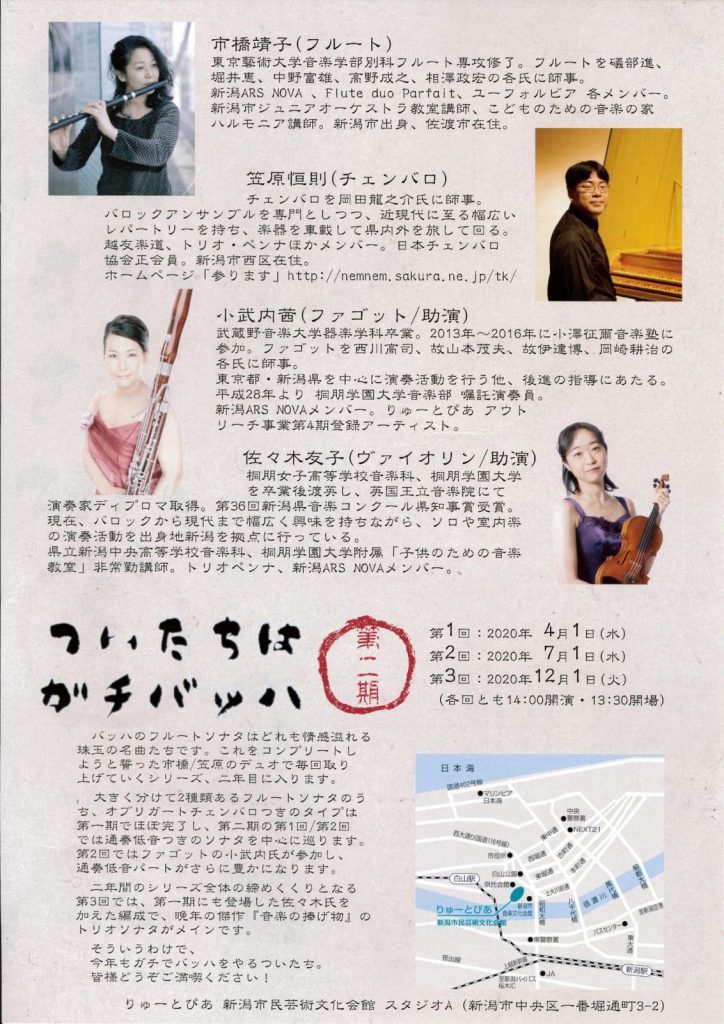 市橋靖子(フルート)
東京藝術大学音楽学部別科フルート専攻修了。フルートを礒部進、
堀井恵、中野富雄、高野成之、相澤政宏の各氏に師事。
新潟ARS NOVA 、Flute duo Parfait、ユーフォルビア 各メンバー。
新潟市ジュニアオーケストラ教室講師、こどものための音楽の家
ハルモニア講師。新潟市出身、佐渡市在住。
笠原恒則(チェンバロ)
チェンバロを岡田龍之介氏に師事。
バロックアンサンブルを専門としつつ、近現代に至る幅広い
レパートリーを持ち、楽器を車載して県内外を旅して回る。
越友楽道、トリオ・ペンナほかメンバー。日本チェンバロ
協会正会員。新潟市西区在住。
ホームページ「参ります」http://nemnem.sakura.ne.jp/tk/
小武内茜(ファゴット/助演)
武蔵野音楽大学器楽学科卒業。2013年～2016年に小澤征爾音楽塾に
参加。ファゴットを西川高司、故山本茂夫、故伊達博、岡崎耕治の
各氏に師事。
東京都・新潟県を中心に演奏活動を行う他、後進の指導にあたる。
平成28年より 桐朋学園大学音楽部 嘱託演奏員。
新潟ARS NOVAメンバー。りゅーとぴあ アウト
リーチ事業第4期登録アーティスト。
佐々木友子(ヴァイオリン/助演)
桐朋女子高等学校音楽科、桐朋学園大学
を卒業後渡英し、英国王立音楽院にて
演奏家ディプロマ取得。第36回新潟県音楽コンクール県知事賞受賞。
現在、バロックから現代まで幅広く興味を持ちながら、ソロや室内楽
の演奏活動を出身地新潟を拠点に行っている。
県立新潟中央高等学校音楽科、桐朋学園大学附属「子供のための音楽
教室」非常勤講師。トリオペンナ、新潟ARS NOVAメンバー。
ついたちは
ガチバッハ
第二期
第1回：2020年 4月1日(水)
第2回：2020年 7月1日(水)
第3回：2020年12月1日(火)
(各回とも14:00開演・13:30開場)
バッハのフルートソナタはどれも情感溢れる
珠玉の名曲たちです。これをコンプリートし
ようと誓った市橋/笠原のデュオで毎回取り
上げていくシリーズ、二年目に入ります。
大きく分けて2種類あるフルートソナタのう
ち、オブリガートチェンバロつきのタイプは
第一期でほぼ完了し、第二期の第1回/第2回
では通奏低音つきのソナタを中心に巡ります。
第2回ではファゴットの小武内氏が参加し、
通奏低音パートがさらに豊かになります。
二年間のシリーズ全体の締めくくりとなる
第3回では、第一期にも登場した佐々木氏を
加えた編成で、晩年の傑作『音楽の捧げ物』の
トリオソナタがメインです。
そういうわけで、
今年もガチでバッハをやるついたち。
皆様どうぞご満喫ください！
日本海
国道402号線
マリンピア
日本海
中央
警察署
NEXT21
西大通り(国道116号線)
市役所
白山公園
県民会館
白山駅
りゅーとぴあ
新潟市民芸術文化会館
新潟市
音楽文化会館
東中通
西堀通
東堀通
古町通
本町通
上大川前通
昭和大橋
八千代橋
信濃川
萬代橋
柳都大橋
至新潟空港
バスセンター
東大通
東警察署
上越新幹線
曽出線
至新潟バイパス
桜木IC
JA
新潟駅
りゅーとぴあ 新潟市民芸術文化会館 スタジオA (新潟市中央区一番堀通町3-2)